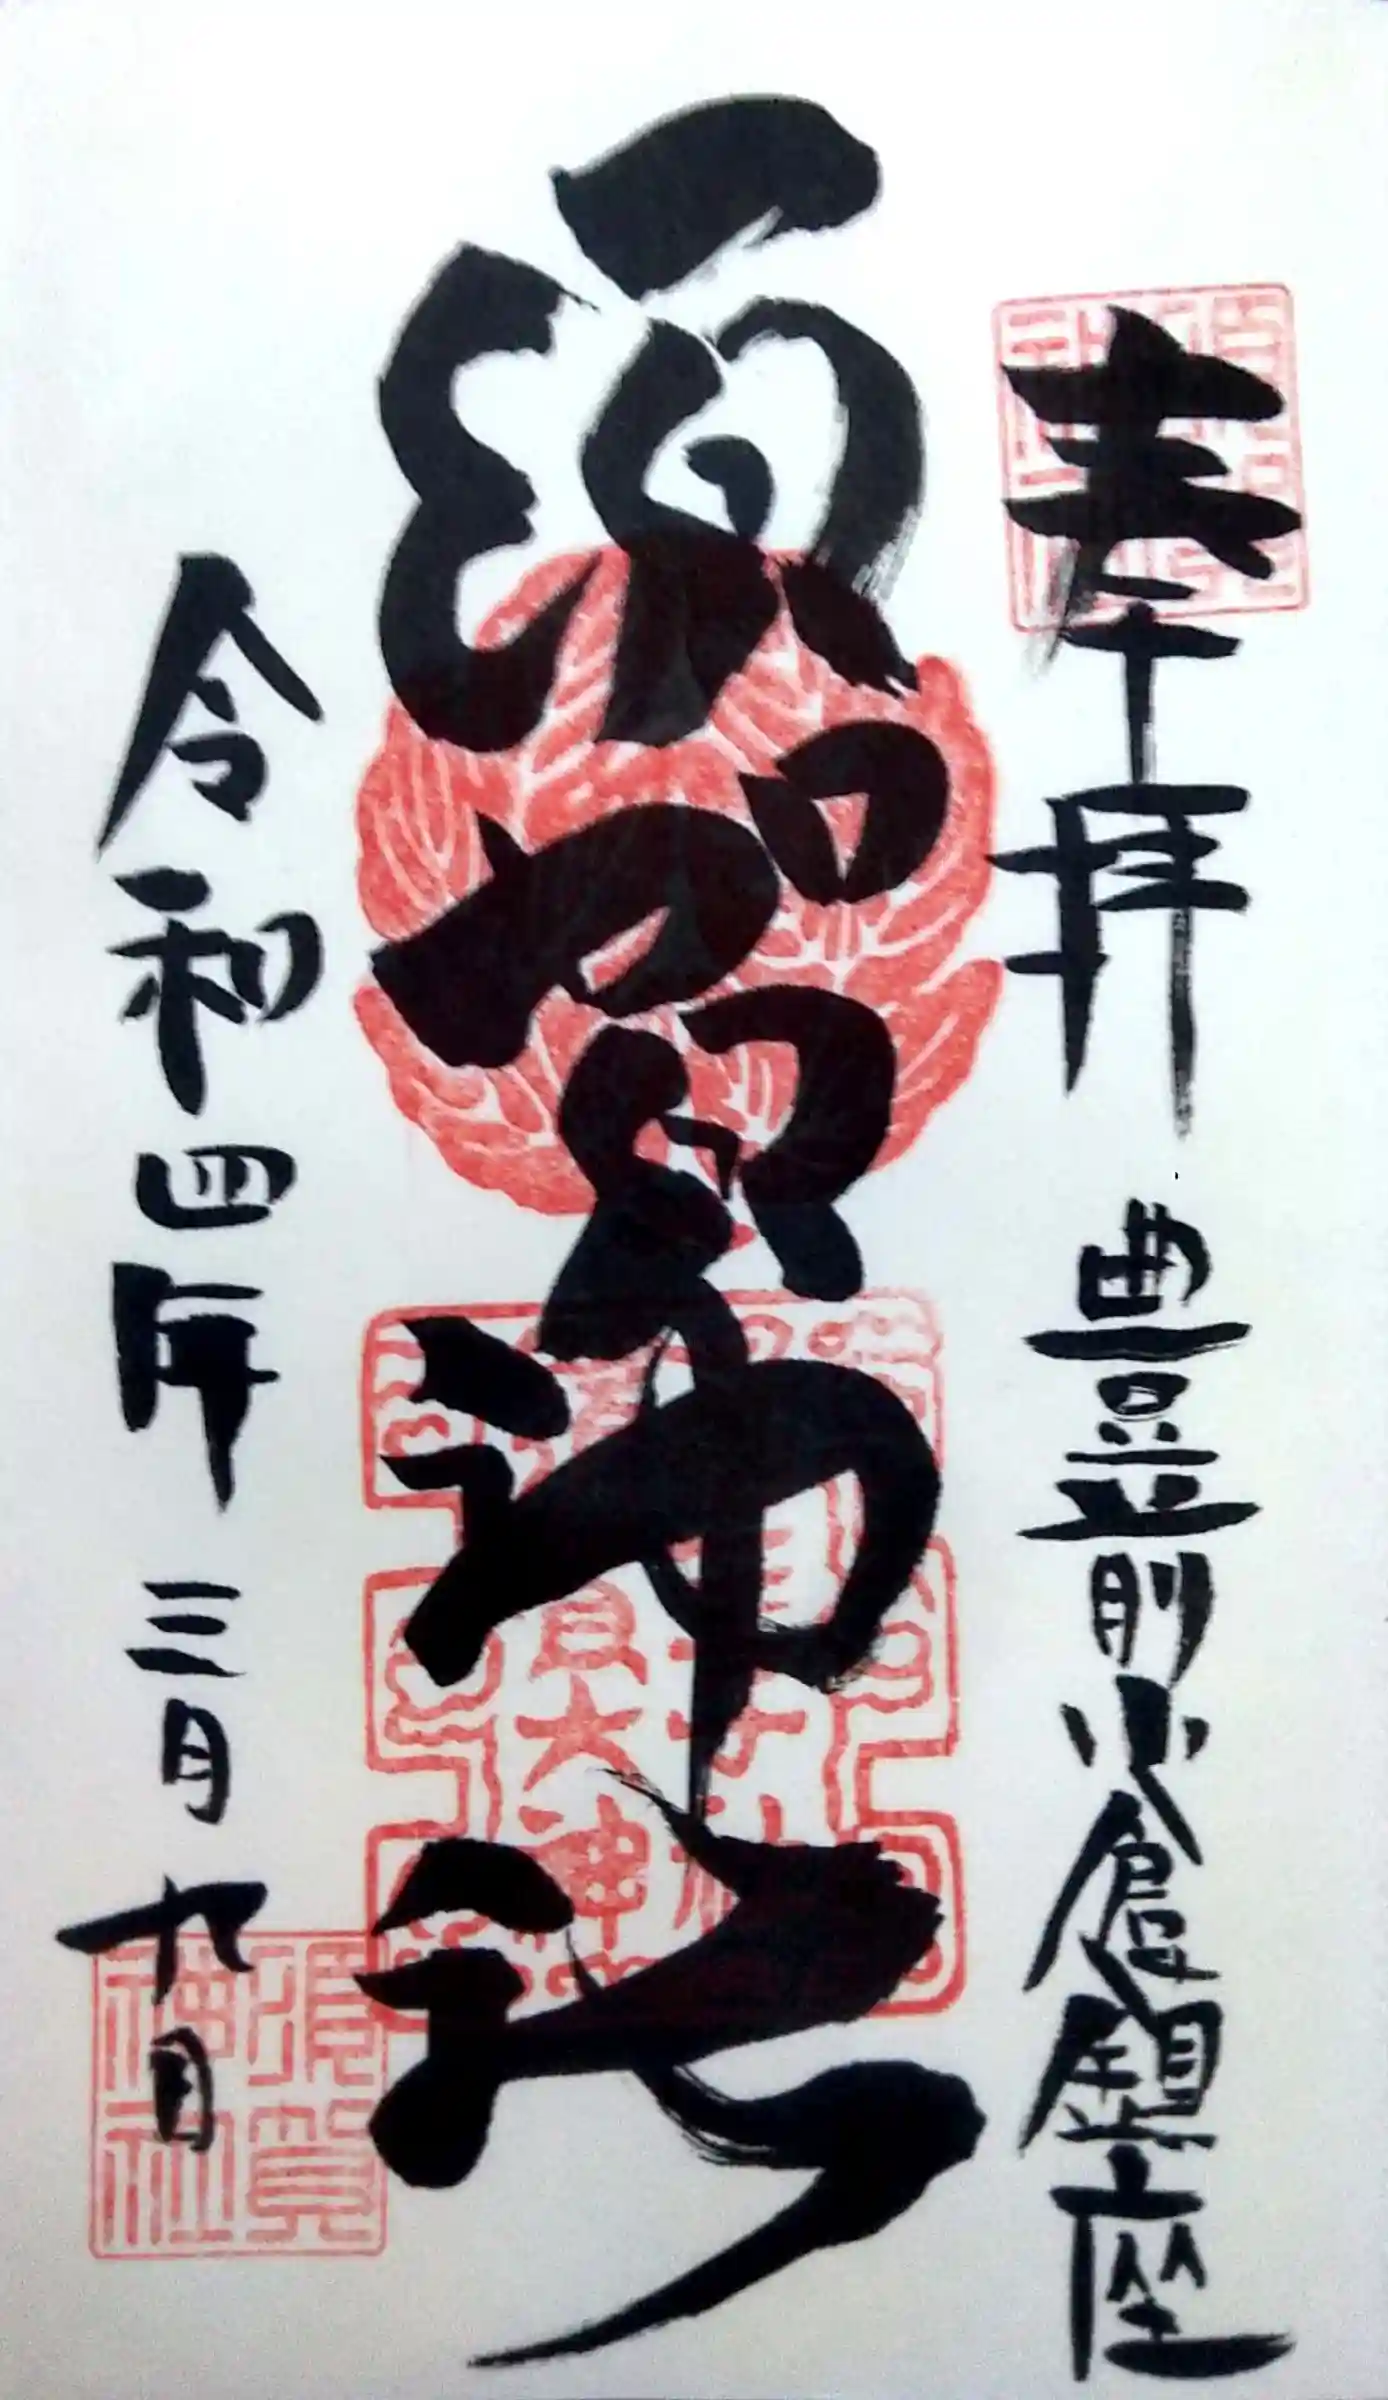 奉拝 豊前小倉鎮座
須賀神社
令和四年 三月 九日
須賀
神社